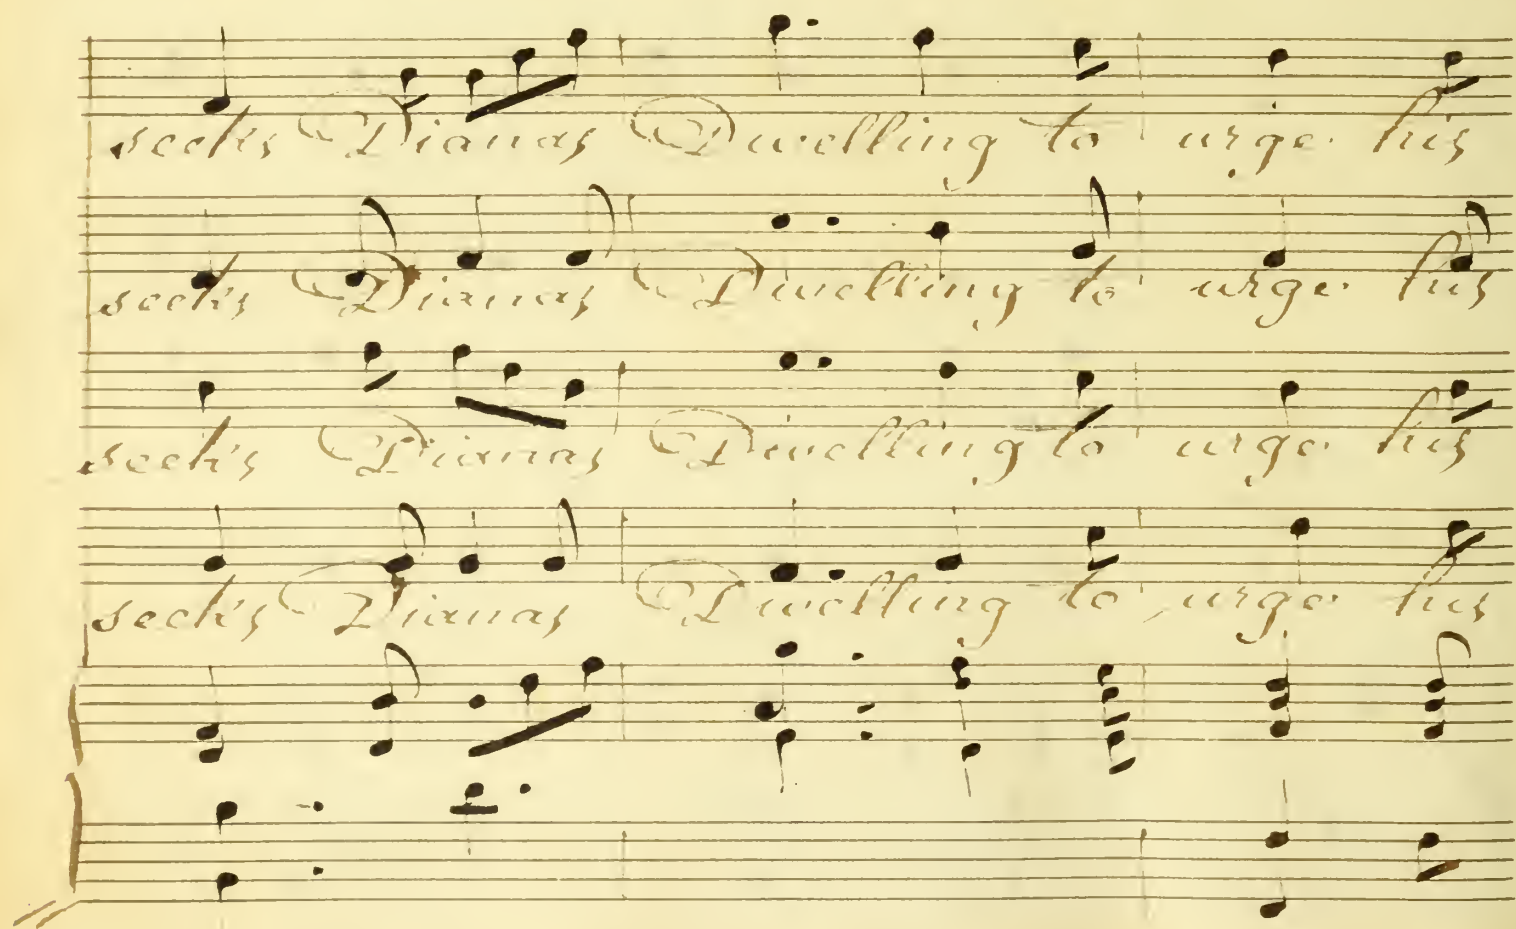 seeks Dianas Dwelling to urge his
seeks Dianas Dwelling to urge his
seeks Dianas Dwelling to urge his
seeks Dianas Dwelling to urge his